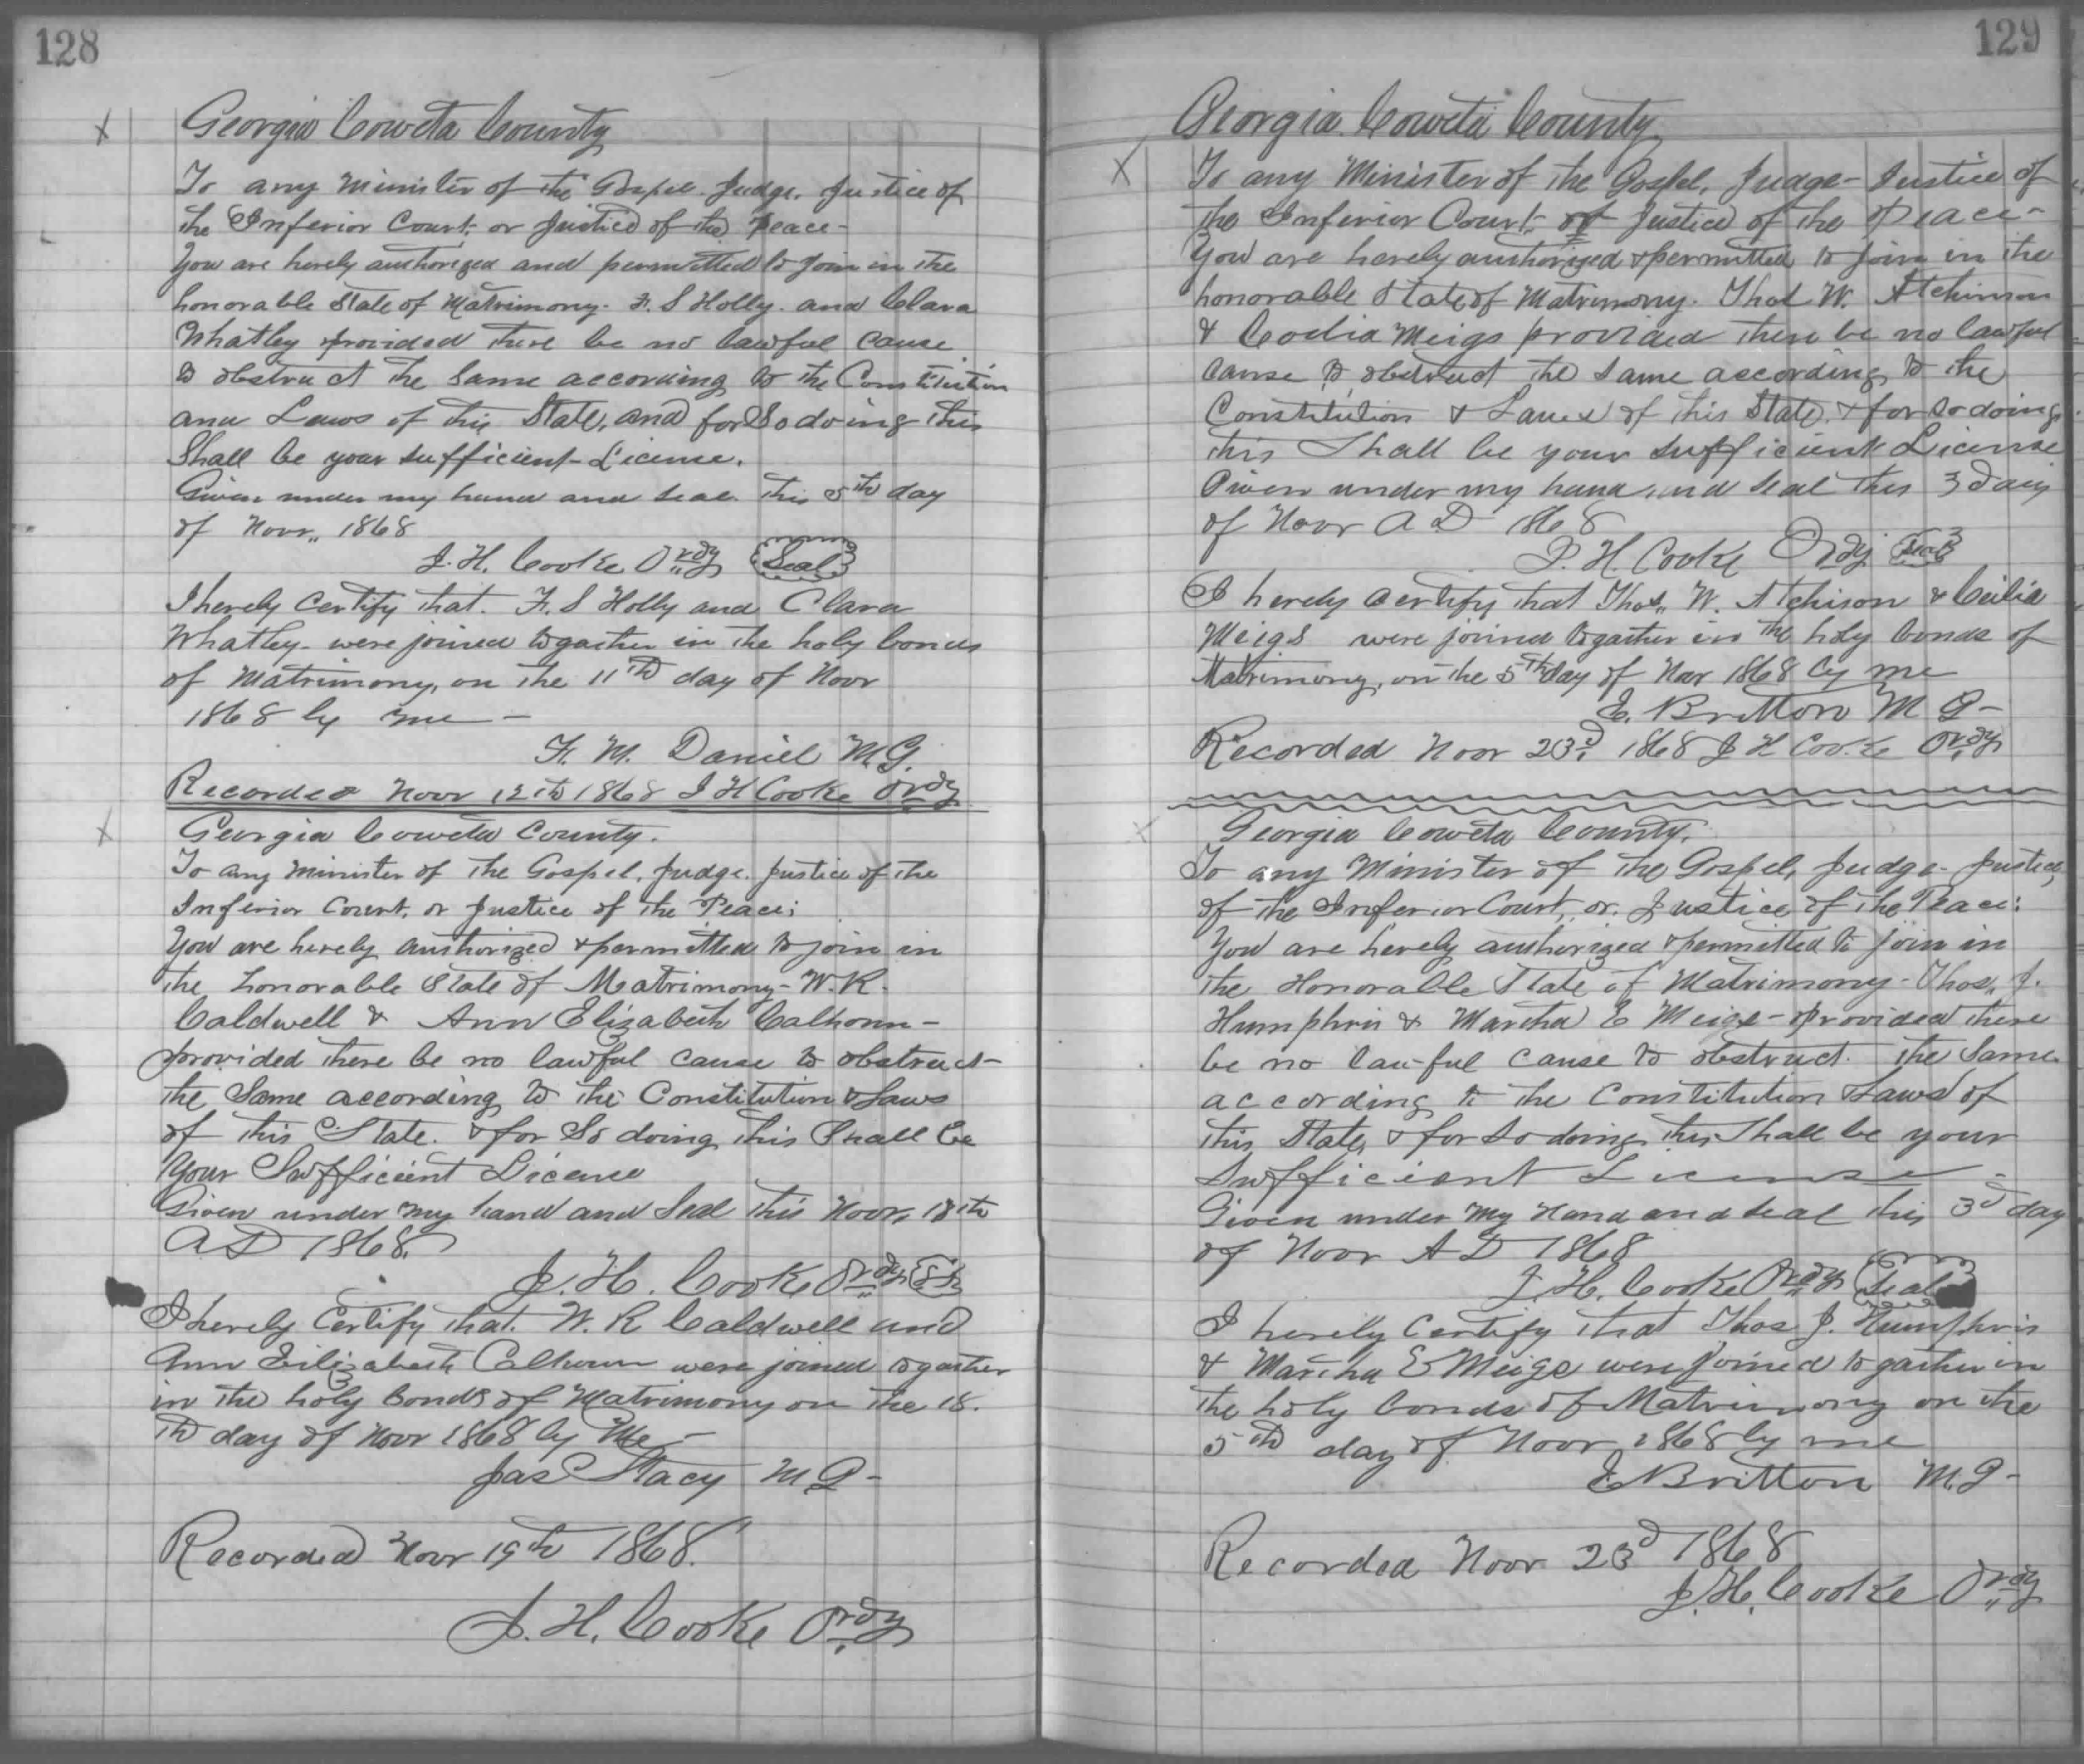 128
Georgia Coweta County
To any Minister of the Gospel. Judge. Justice of
the Inferior Court. or Justice of the Peace-
You are herely authorized and permitted to join in the
honorable State of Matrimony. F. S Holly. and Clara
Whatley provided there be no lawful cause
to obstruct the Same according to the Constitution
and Laws of this State, and for So doing this
Shall be your sufficient License.
Given under my hand and seal this 5th day
of Novr,, 1868
J. H. Cooke Ordy Seal
I herely Certify that. F. S Holly and Clara
Whatley- were joined togather in the holy bonds
of Matrimony, on the 11th day of Novr
1868 by me -
F. M. Daniel M.G.
Recorded Novr 12th 1868 J H Cooke Ordy
Georgia Coweta County.
To any Minister of the Gospel, Judge. Justice of the
Inferior Court, or Justice of the Peace;
You are herely authorized & permitted to join in
the honorable State of Matrimony- W. R.
Caldwell & Ann Elizabeth Calhoun-
provided there be no lawful cause to obstruct-
the Same according to the Constitution & Laws
of this State. & for So doing this Shall be
your Sufficient License
Given under my hand and Seal this Novr, 18th
A D 1868.
J. H. Cooke Ordy
I herely Certify that. W. R Caldwell and
Ann Eilizabeth Calhoun were joined togather
in the holy bonds of Matrimony on the 18.
th day of Novr 1868 by Me-
Jas Stacy M G-
Recorded Novr 19th 1868.
J. H. Cooke Ordy
129
Georgia Coweta County
To any Minister of the Gospel, Judge- Justice of
the Inferior Court- or Justice of the Peace-
You are herely authorized & permitted to join in the
honorable State of Matrimony. Thos W. Atchinson
& Ceelia Meigs provided there be no lawful
cause to obstruct the Same according to the
Constitution & Laws of this State. & for So doing
this Shall be your sufficient License
Given under my hand and Seal this 3 day
of Novr A D 1868
J. H. Cooke Ordy Seal
I herely Certify that Thos,, W. Atchison & Ceilia
Meigs were joined togather in the holy bonds of
Matrimony, on the 5th day of Nov 1868 by me
E. Britton M G-
Recorded Novr 23d, 1868 J H Cooke Ordy
Georgia Coweta County.
To any Minister of the Gospel, Judge- Justice,
of the Inferior Court, or. Justice of the Peace:
You are herely authorized & permitted to join in
the Honorable State of Matrimony- Thos,, J.
Humphris & Martha E Meigs- provided there
be no lawful cause to obstruct. the Same
according to the Constitution & Laws of
this State, & for So doing this Shall be your
Sufficient License-
Given under My Hand and seal this 3d day
of Novr A D 1868
J. H. Cooke Ordy Seal
I herely Certify that Thos J. Humphris
& Martha E Meigs were joined to gather in
the holy bonds of Matrimony on the
5th day of Novr 1868 by me
E Britton M. G-
Recorded Novr 23d 1868
J. H. Cooke Ordy